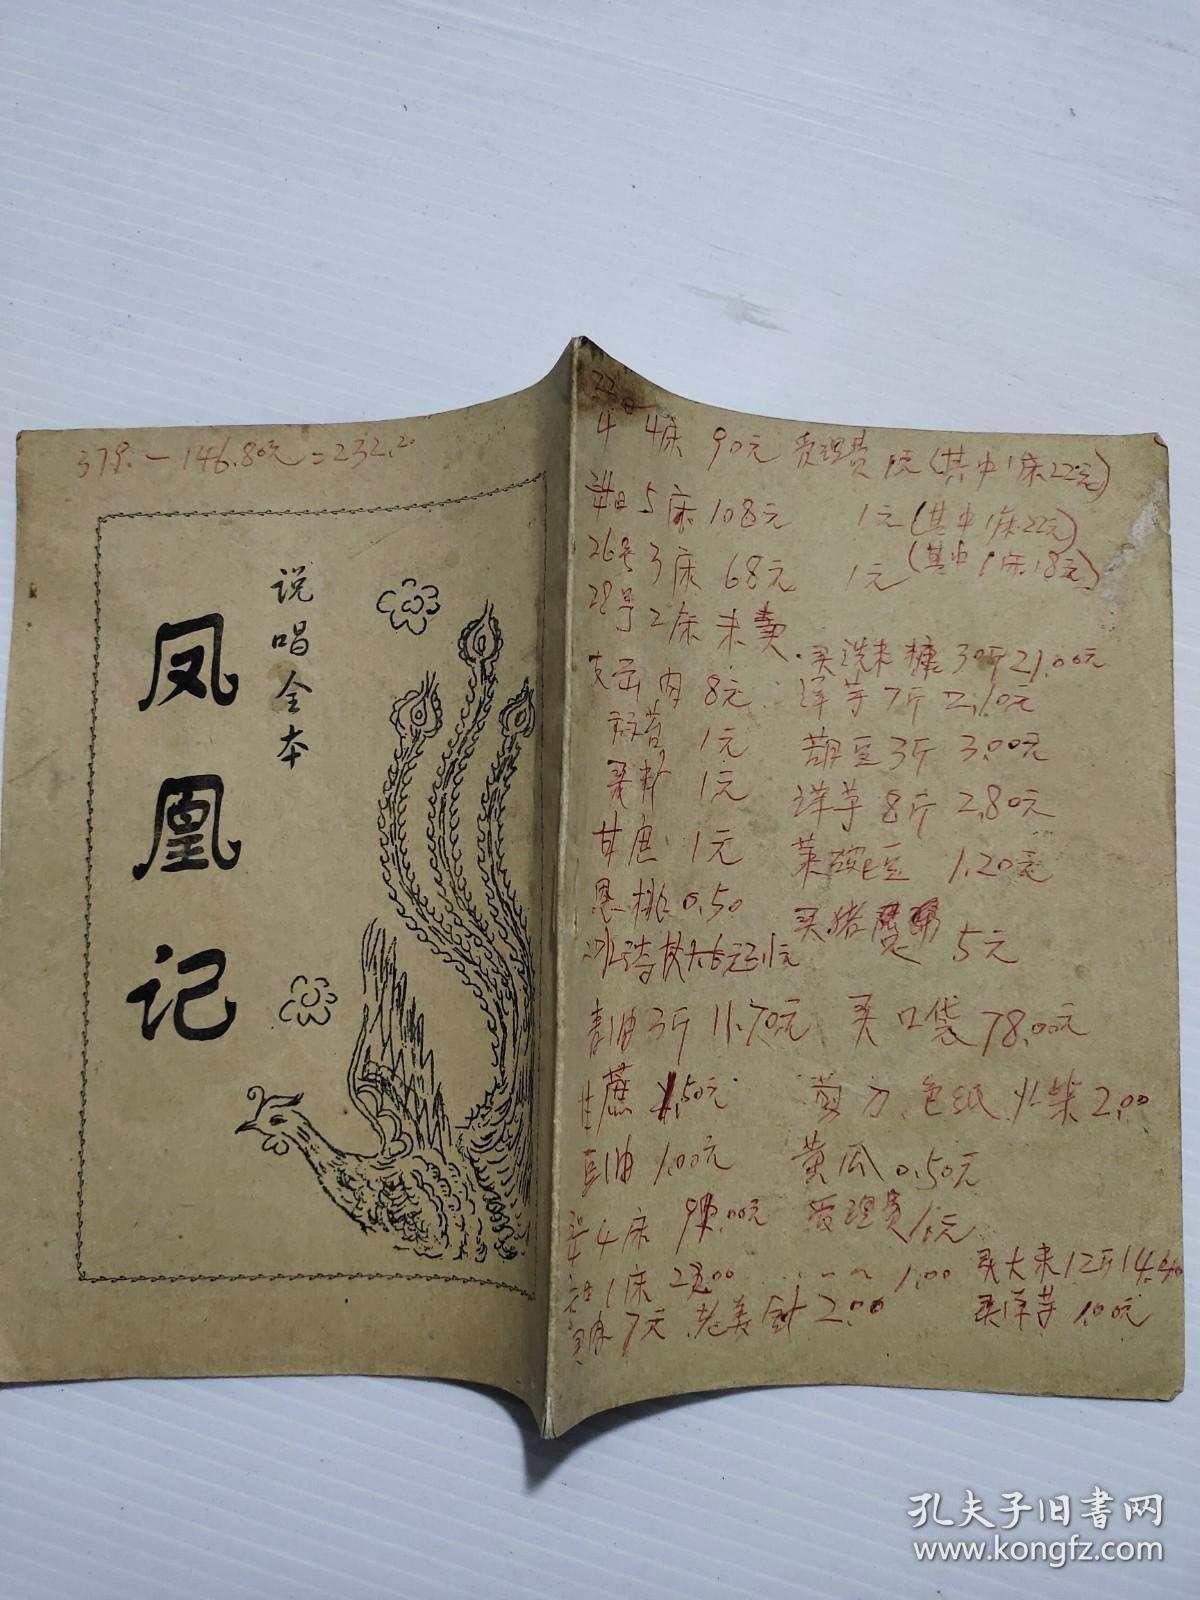 379.-146.80元=232.20
说唱全本
凤凰记
22日
4床 90元 管理费1元(其中1床22元)
5床108元 1元(其中1床22元)
26号3床68元 1元(其中1床18元)
28号2床未卖
支云肉8元
1元
1元
甘 1元
桃0.50
青油3斤11.70元
甘蔗 .50元
豆油1.00元
4床 .00元 管理费1元
1床2 .00 1.00
7元 老姜 2.00
买洗米糠30斤21.00元
洋芋7斤2.10元
葫豆3斤3.00元
洋芋8斤2.80元
菜豌豆1.20元
买猪 5元
买口袋78.00元
剪刀、色纸、火柴2.00
黄瓜0.50元
买大米12斤14.40
买洋芋1.00元
孔夫子旧书网
www.kongfz.com